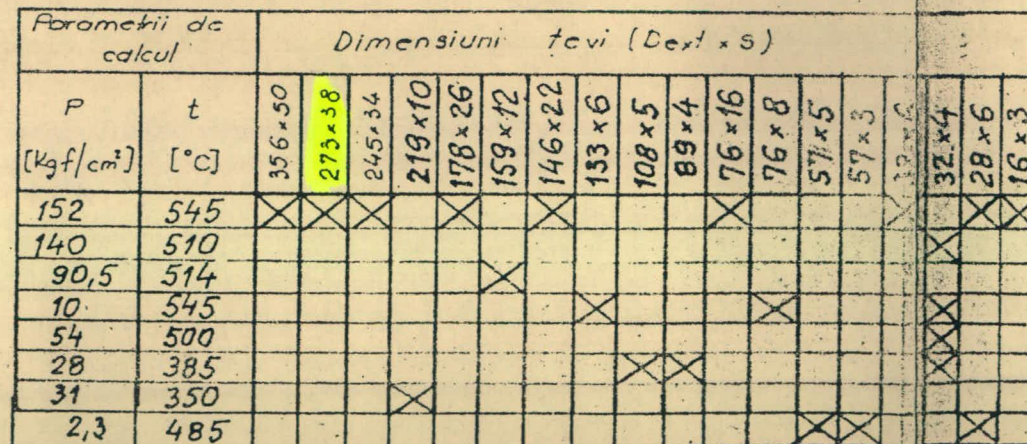 Parametrii de calcul
Dimensiuni tevi (Dext × s)
P [Kgf/cm²]
t [°C]
356×50
273×38
245×34
219×10
178×26
159×12
146×22
133×6
108×5
89×4
76×16
76×8
57×5
57×3
32×4
28×6
16×3
152 545
140 510
90,5 514
10 545
54 500
28 385
31 350
2,3 485